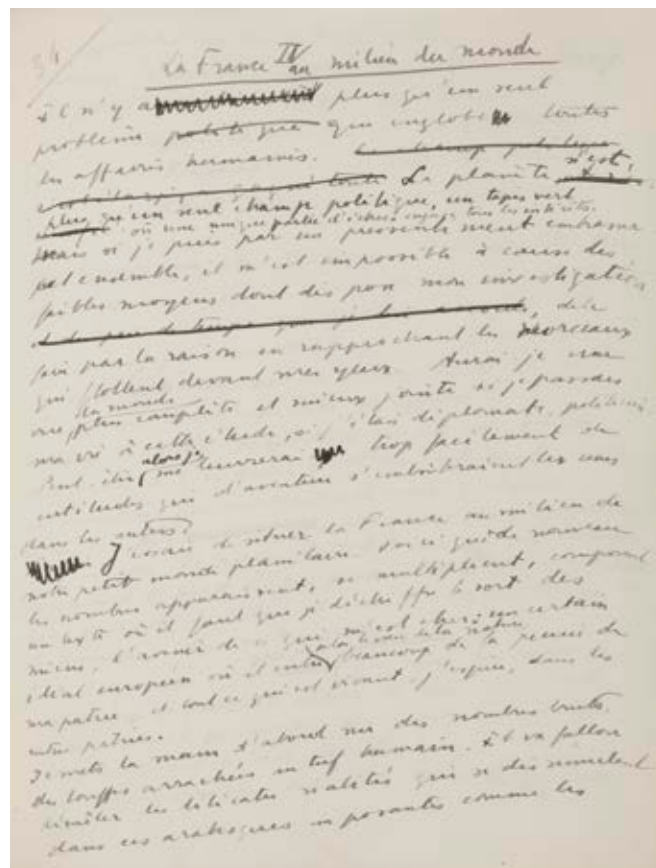 34
IV
La France au milieu du monde
Il n'y a plus qu'un seul
problème politique qui englobe toutes
les affaires humaines. Le champ politique
La planète n'est,
plus qu'un seul champ politique, un tapis vert
où une unique partie d'échecs engage tous les intérêts.
Mais si je puis par un pressentiment embrasser
cet ensemble, il m'est impossible à cause des
faibles moyens dont dispose mon investigation
et du peu de temps que je lui accorde, de le
faire par la raison en rapprochant les morceaux
qui flottent devant mes yeux. Aurai je une
du monde
vue plus complète et mieux jointe si je passais
ma vie à cette étude, si j'étais diplomate, politicien,
alors je
Peut-être me trop facilement de
certitudes qui d'aventure s'emboîteraient les unes
dans les autres?
J'essaie de situer la France au milieu de
notre petit monde planétaire. Voici que de nouveau
les nombres apparaissent, se multiplient, composent
un texte où il faut que je déchiffre le sort des
miens, l'avenir de ce qui m'est cher: un certain
état européen où il entre beaucoup de la pensée de
ma patrie, et tout ce qui est vivant, j'espère, dans les
autres patries.
Je mets la main d'abord sur des nombres bruts.
des touffes arrachées au tuf humain. Il va falloir
démêler les délicates réalités qui se dissimulent
dans ces arabesques imposantes comme les